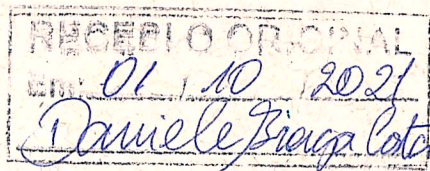 RECEBI O ORIGINAL
Em: 01 / 10 / 2021
Daniele Braga Costa